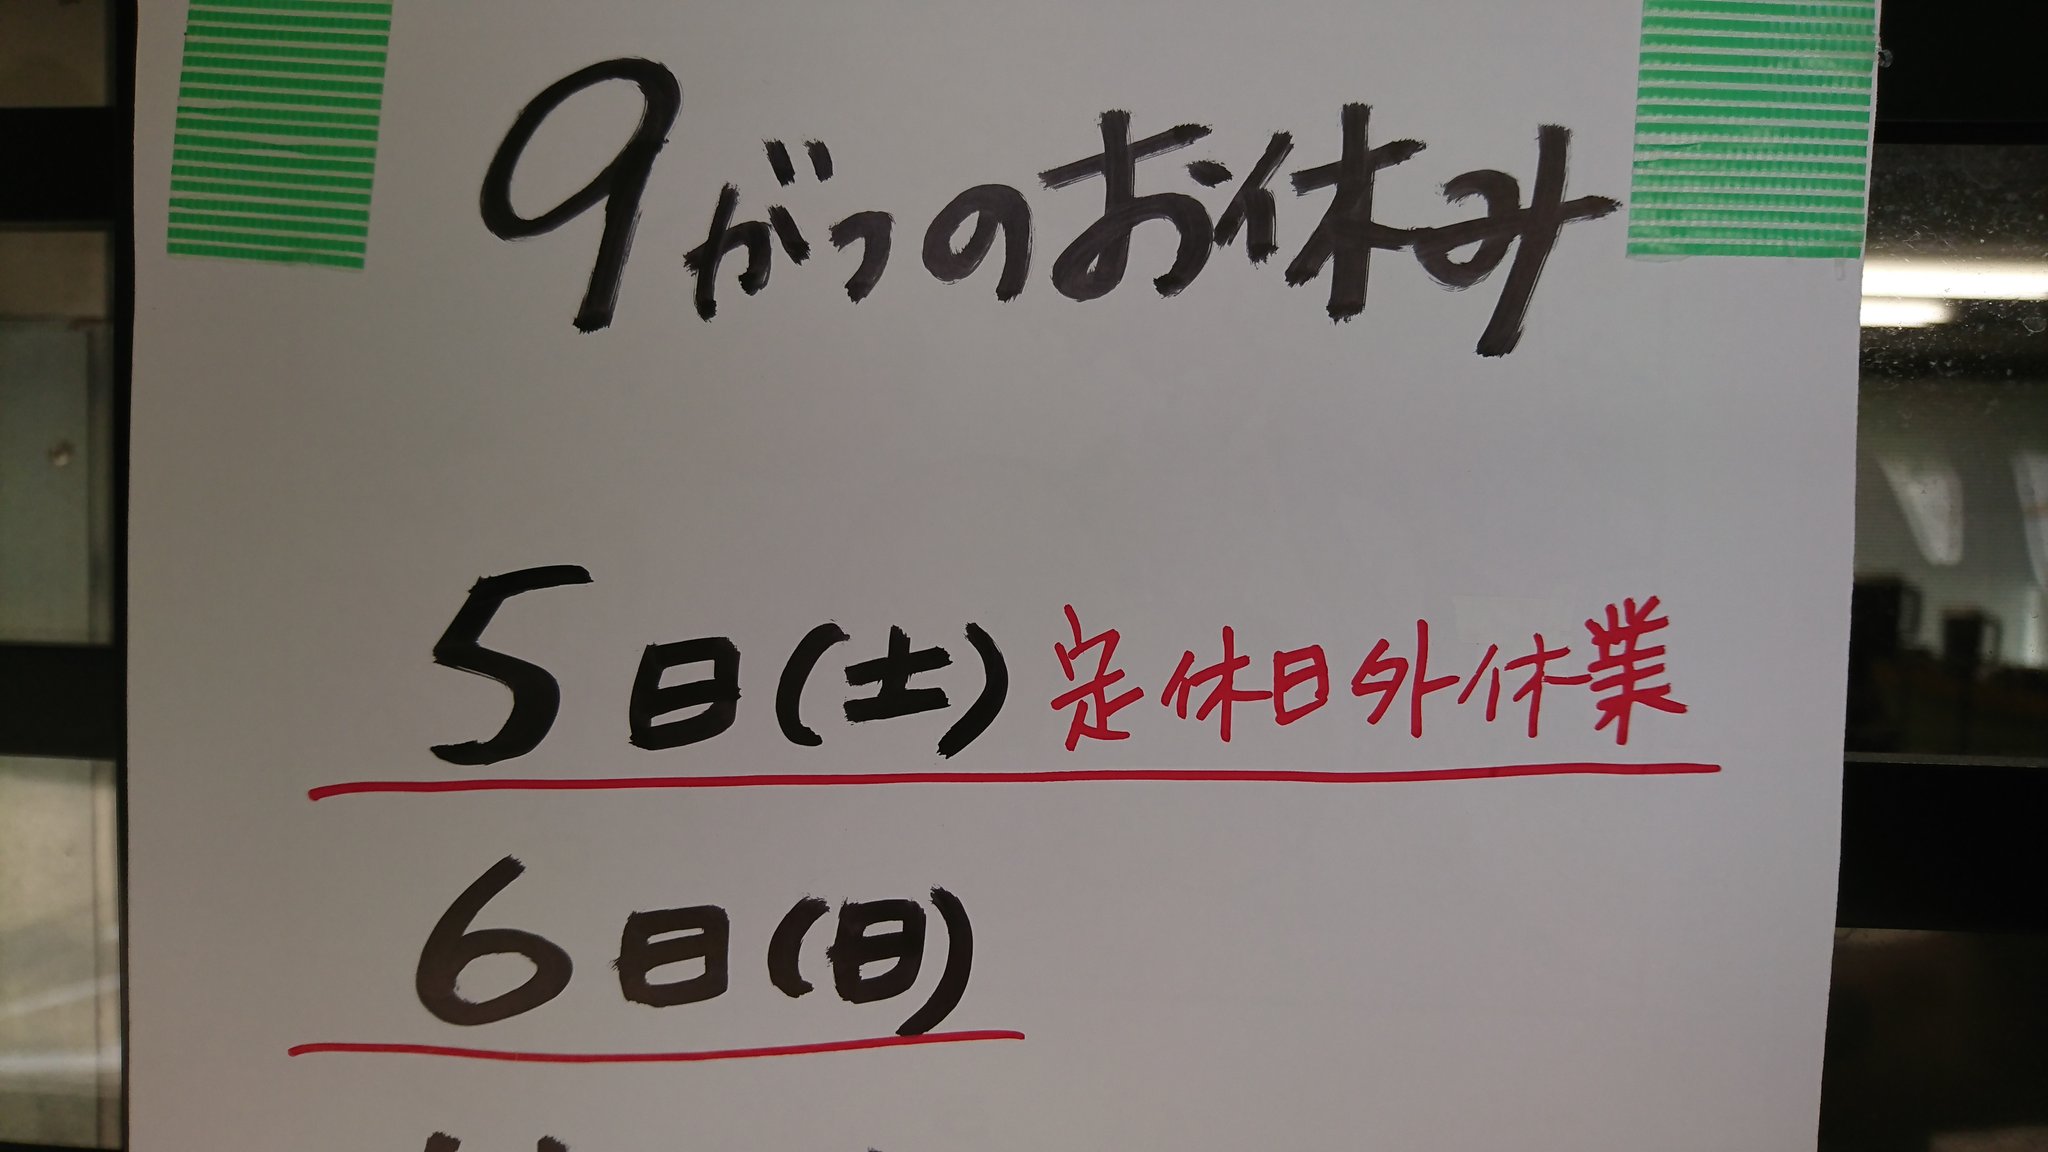 9がつのお休み
5日(土)定休日外休業
6日(日)